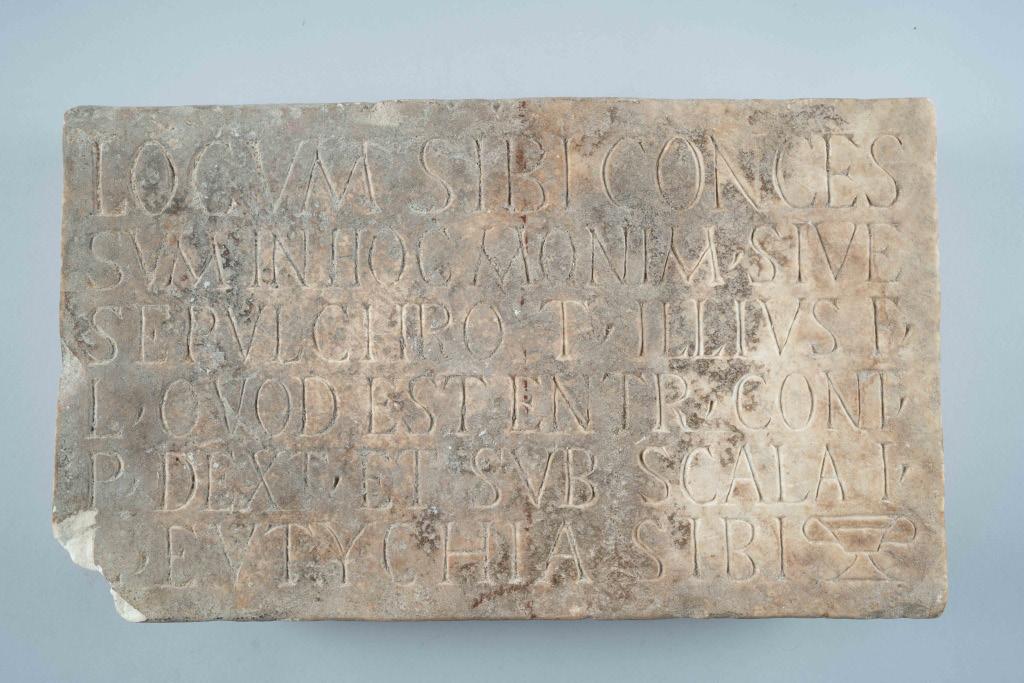 LOCVM SIBI CONCES
SVM IN HOC MONIM, SIVE
SEPVLCHRO T, ILLIVS F,
L, QVOD EST ENTR, CONT,
P, DEXT, ET SVB SCALA I,
, EVTYCHIA SIBI